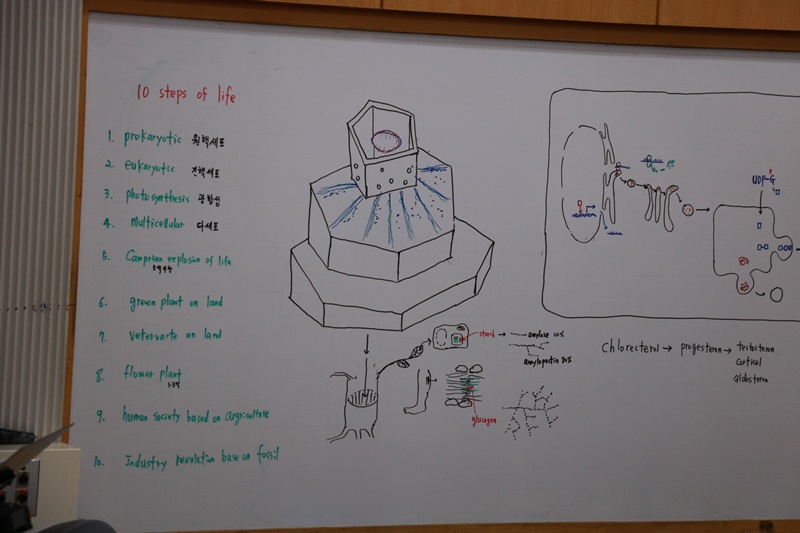 10 steps of life
1. prokaryotic 원핵세포
2. eukaryotic 진핵세포
3. photosynthesis 광합성
4. multicellular 다세포
5. Camprian explosion of life
6. green plant on land
7. on land
8. flower plant
9. human society based on
10. Industry revolution base on fossil
starch
amylose 20%
amylopectin 80%
glycogen
UDP-G
Chloresterol → progesteron → testosteron
cortisol
aldosteron